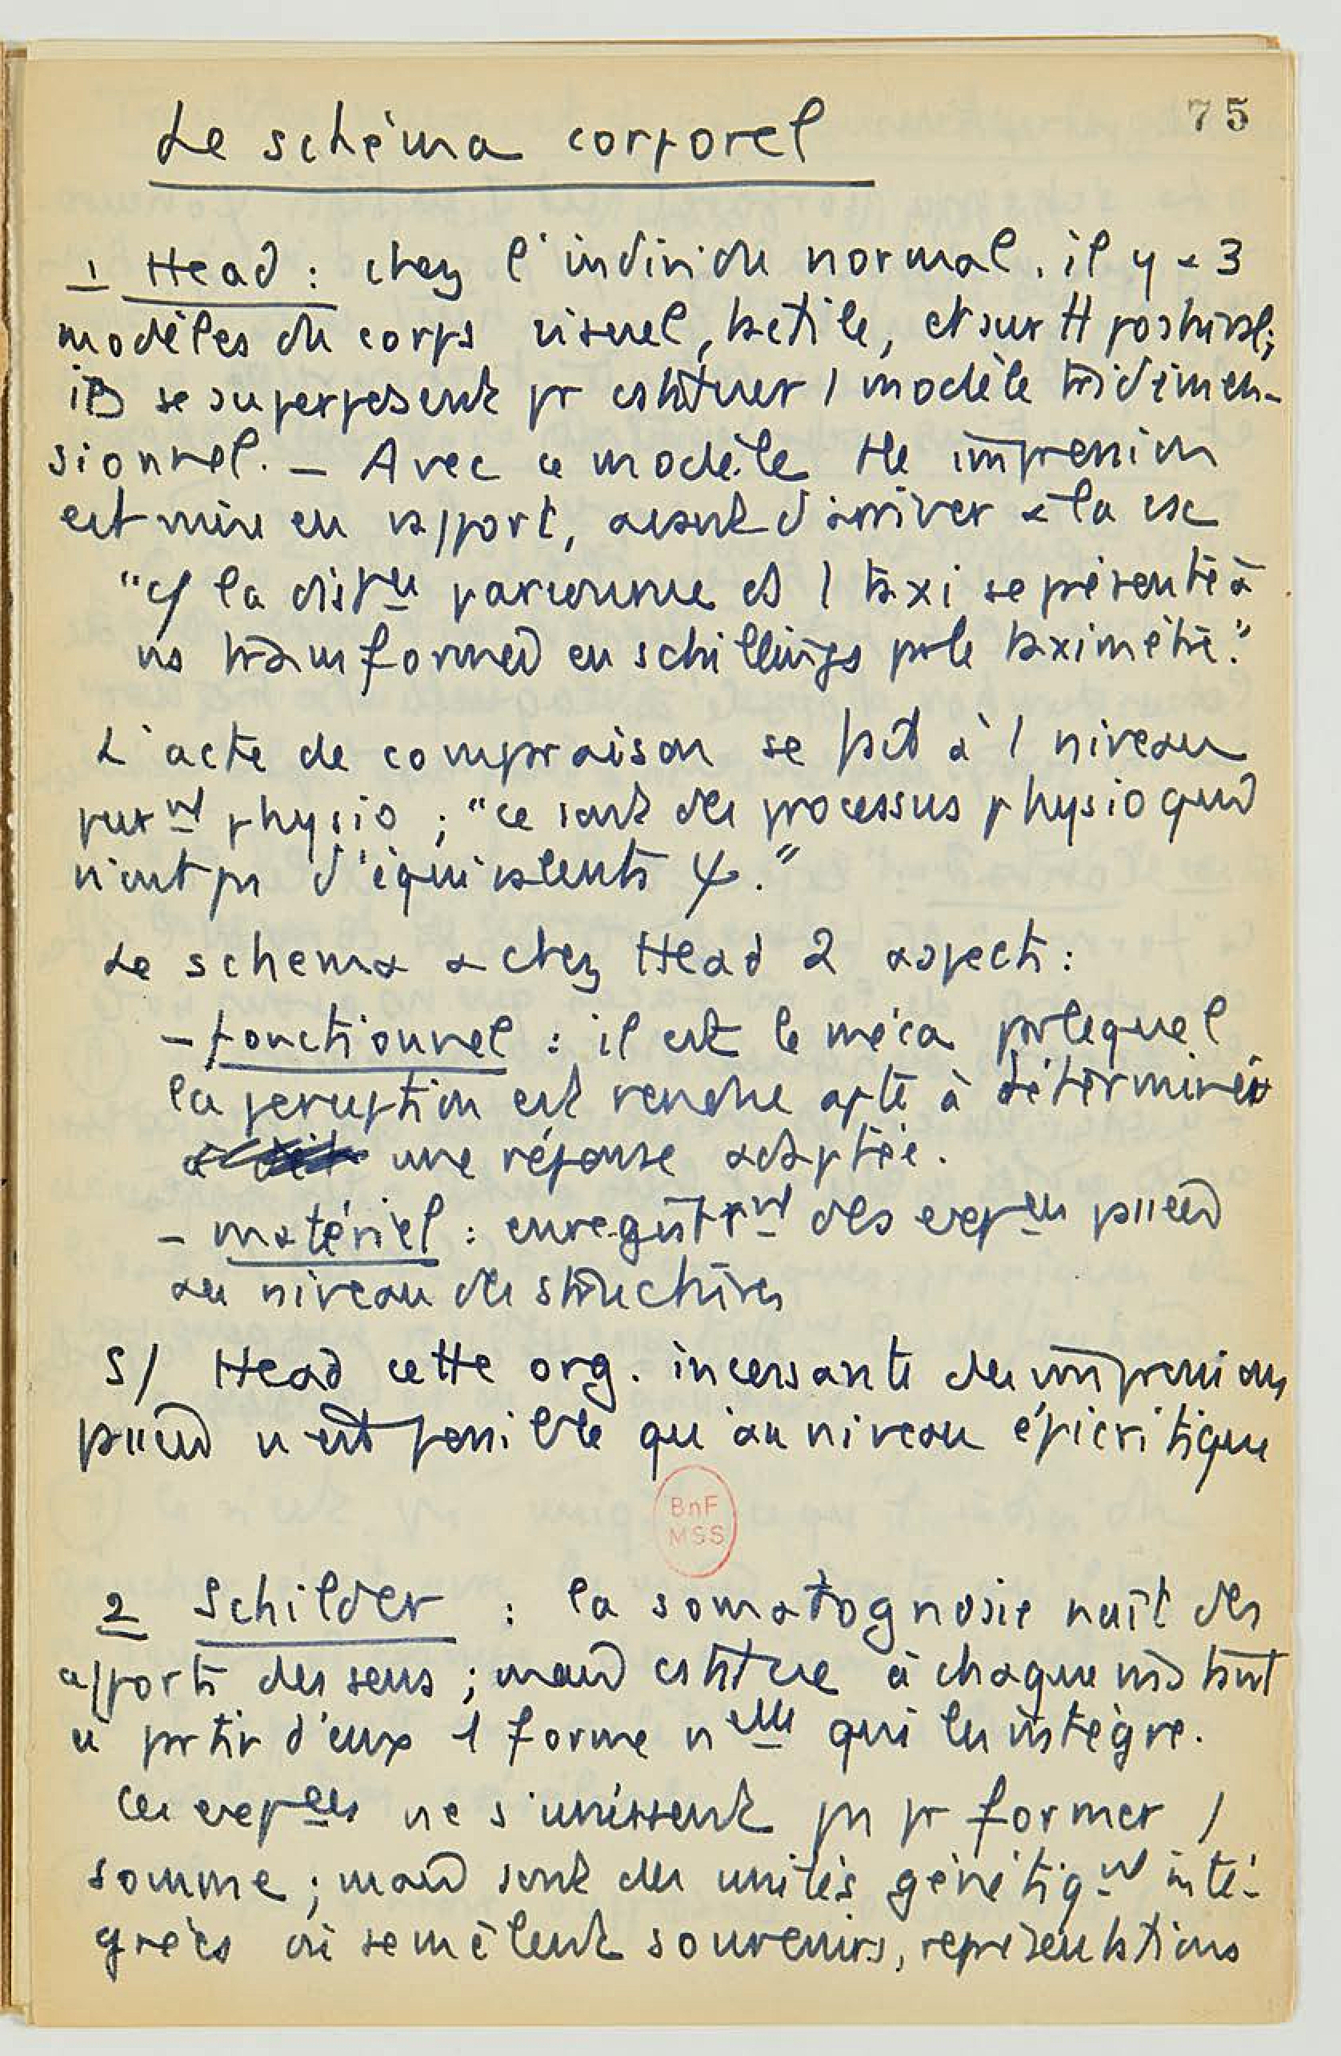 75
Le schéma corporel
1 Head : chez l'individu normal, il y a 3
modèles du corps visuel, tactile, et surtt postural;
ils se superposent pr cstituer 1 modèle tridimen-
sionnel. – Avec ce modèle tte impression
est mise en rapport, avant d'arriver à la csc
"cf la distce parcourue ds 1 taxi se présente à
ns transformée en schillings par le taximètre."
L'acte de comparaison se fait à 1 niveau
purnt physio ; "ce sont des processus physio qui
n'ont pas d'équivalents ψ."
Le schema a chez Head 2 aspects :
– fonctionnel : il est le méca par lequel
la perception est rendue apte à déterminer
une réponse adaptée.
– matériel : enregistrnt des expces passées
au niveau des structures
S/ Head cette org. incessante des impressions
passées n'est possible qu'au niveau épicritique
BnF
MSS
2 Schilder : la somatognosie naît des
apports des sens ; mais cstitue à chaque instant
à partir d'eux 1 forme nelle qui les intègre.
Ces expces ne s'unissent pas pr former 1
somme ; mais sont des unités génétiqnt inté-
grées où se mêlent souvenirs, représentations